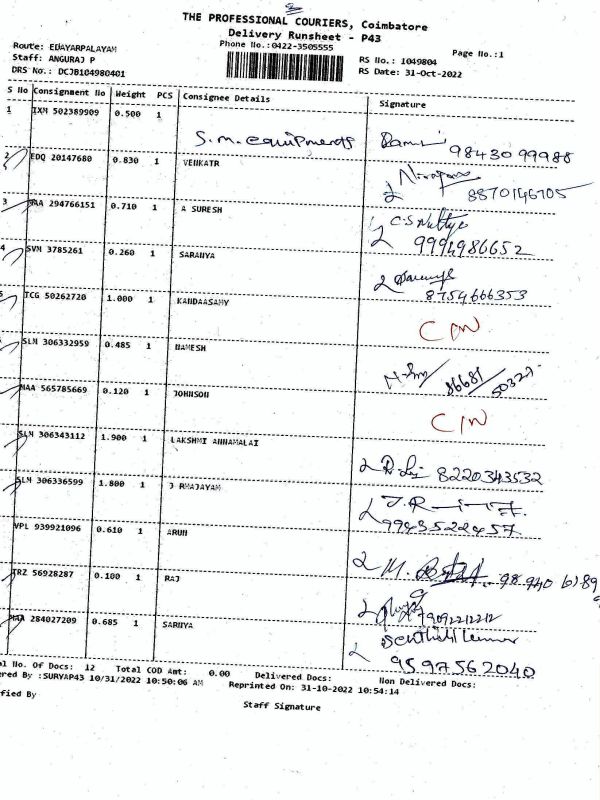 THE PROFESSIONAL COURIERS, Coimbatore
Delivery Runsheet - P43
Phone No.:0422-3505555
Page No.:1
Route: EDAYARPALAYAM
Staff: ANGURAJ P
DRS No.: DCJB104980401
RS No.: 1049804
RS Date: 31-Oct-2022
S No Consignment No Weight PCS Consignee Details Signature
1 IXM 502389909 0.500 1 S.M. equipments 98430 99988
2 EDQ 20147680 0.830 1 VENKATR 8870146705
3 MAA 294766151 0.710 1 A SURESH 9994986652
4 SVN 3785261 0.260 1 SARANYA 8754666353
5 TCG 50262720 1.000 1 KANDAASAMY C/N
SLM 306332959 0.485 1 NAMESH 86681/50327
MAA 565785669 0.120 1 JOHNSON C/N
SLM 306343112 1.900 1 LAKSHMI ANNAMALAI 8220343532
SLM 306336599 1.800 1 J RMAJAYAM 9943522457
VPL 939921096 0.610 1 ARUN M.
TRZ 56928287 0.100 1 RAJ 79092212212
MAA 284027209 0.685 1 SARNYA Senthil kumar 9597562040
al No. Of Docs: 12 Total COD Amt: 0.00 Delivered Docs: Non Delivered Docs:
ered By :SURYAP43 10/31/2022 10:50:06 AM Reprinted On: 31-10-2022 10:54:14
ified By
Staff Signature